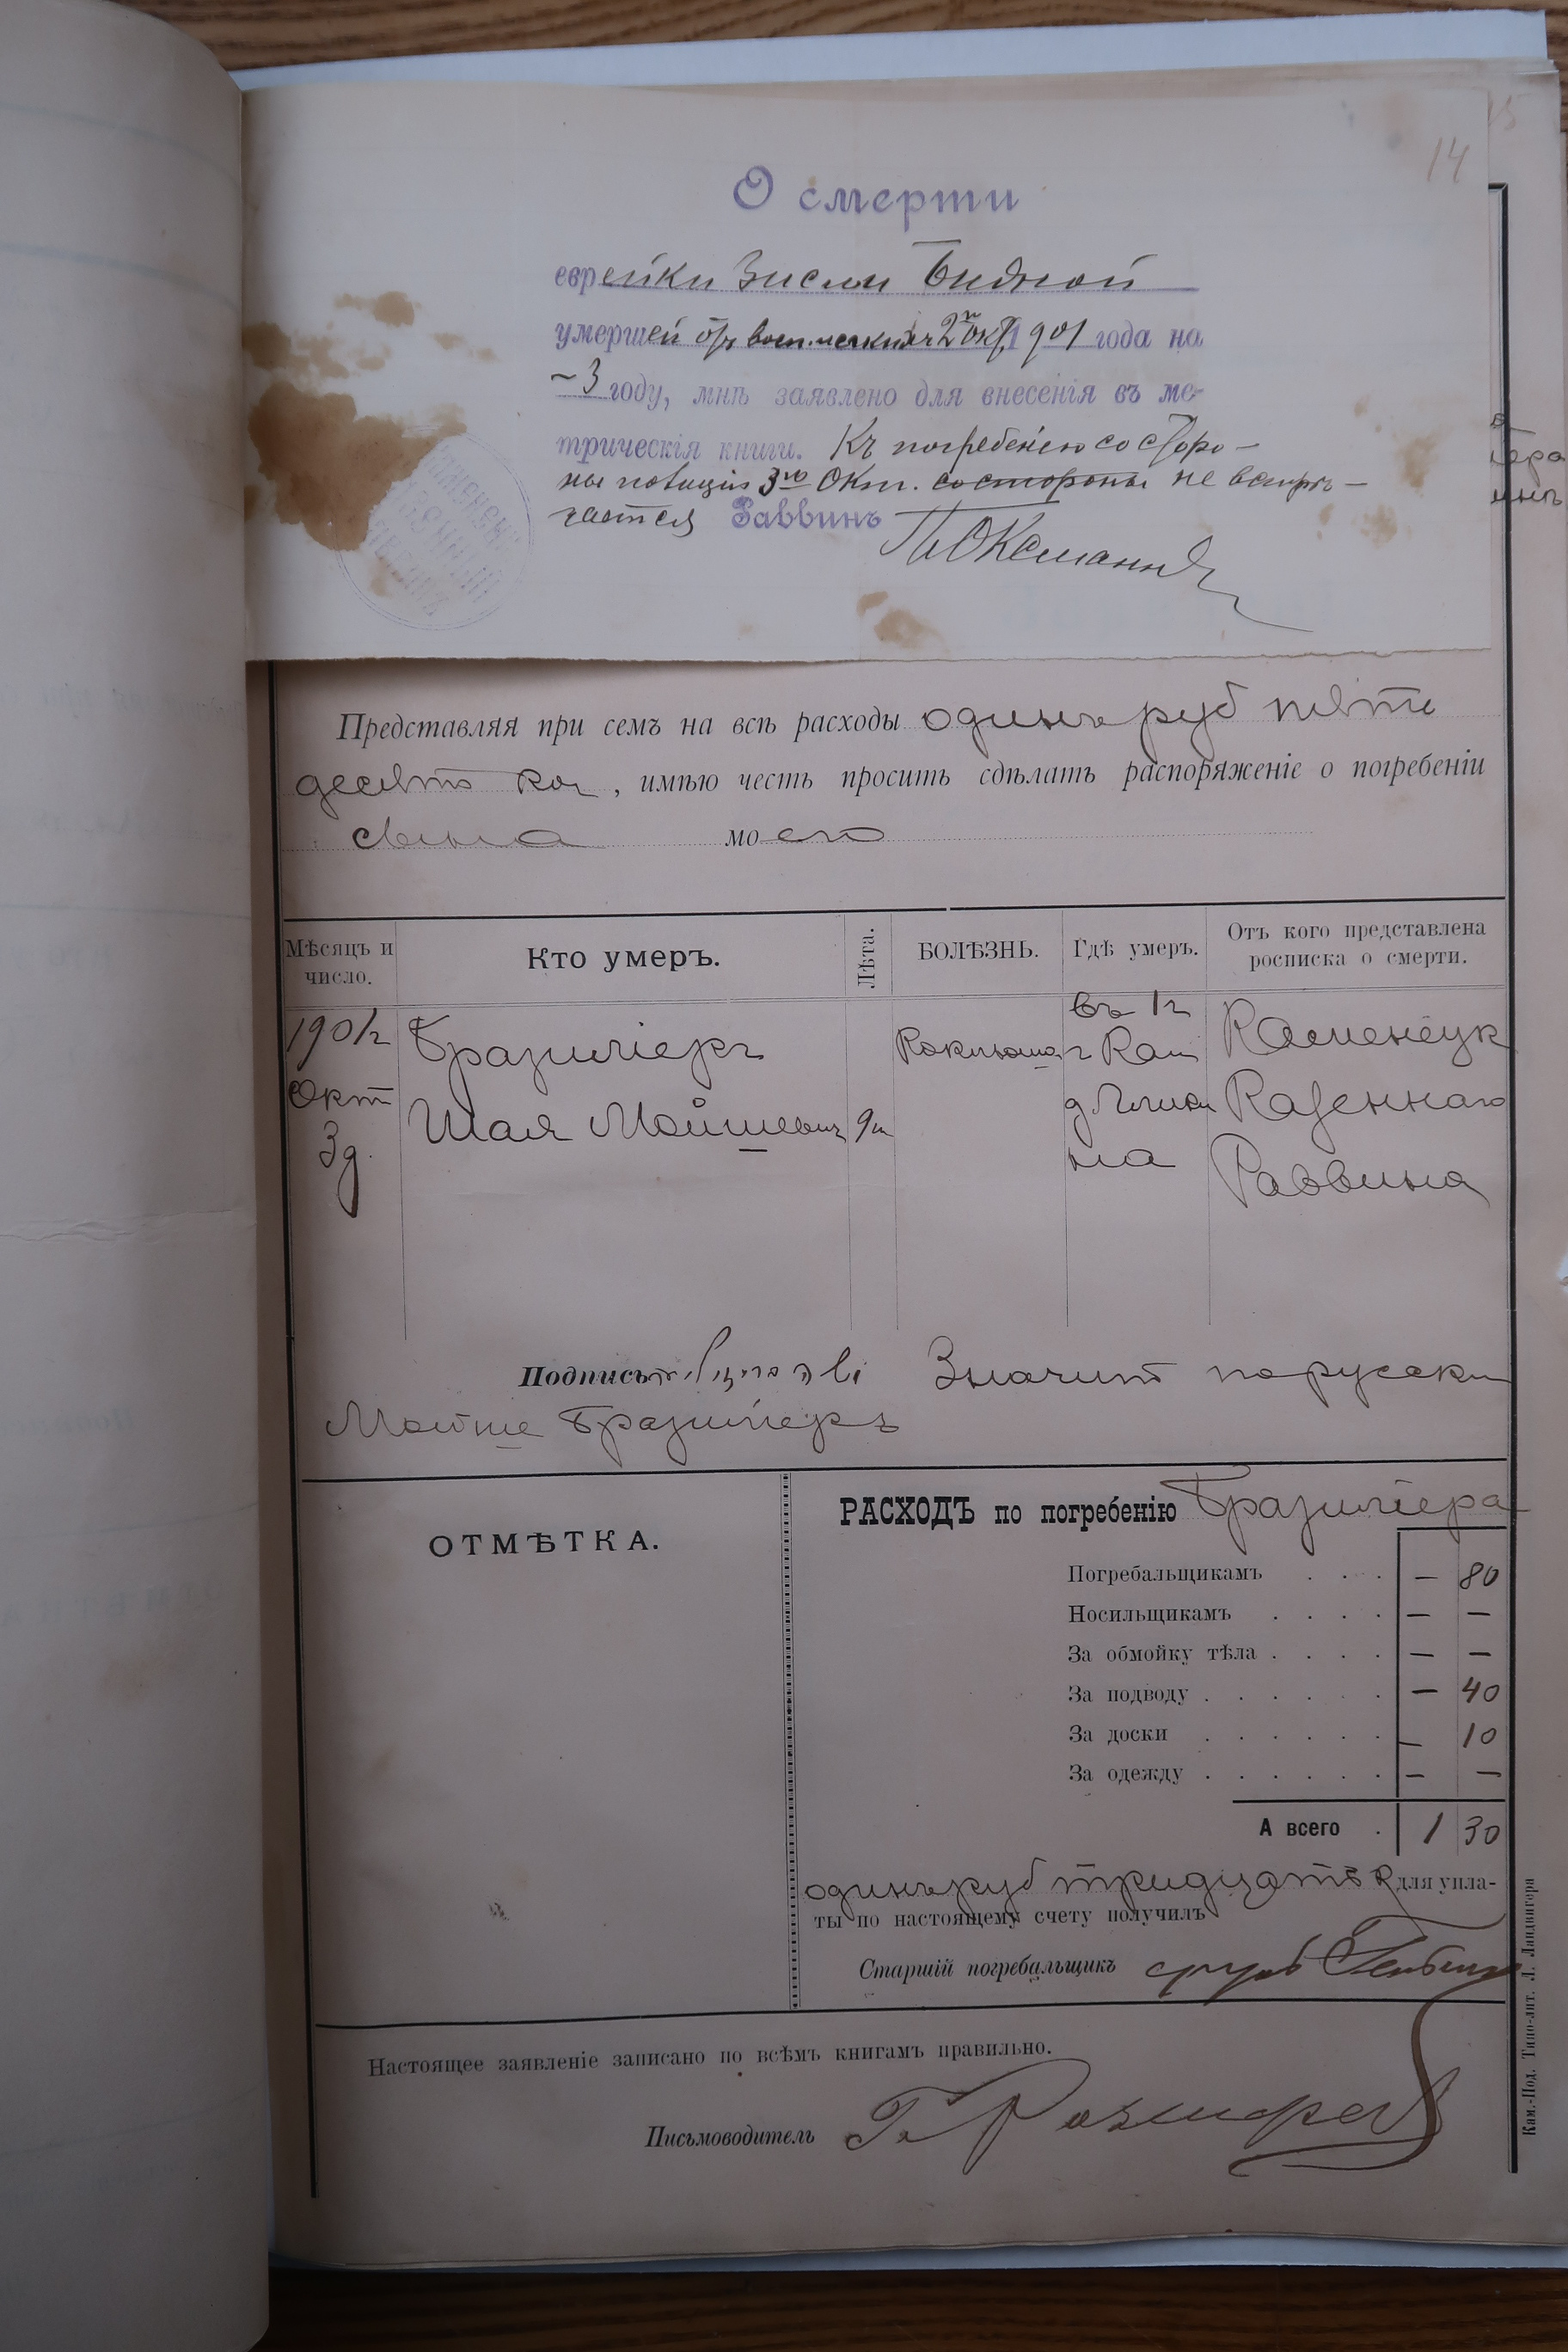 15
14
О смерти
еврейки Зисли Бидной
умершей отъ восп. легкихъ 2го Окт. 1901 года на
3 году, мнѣ заявлено для внесенія въ ме-
трическія книги. Къ погребенію со сторо-
ны полиціи 3го Окт. со стороны не встрѣ-
чается Раввинъ
Представляя при семъ на всѣ расходы одинъ руб пять
десять коп, имѣю честь просить сдѣлать распоряженіе о погребеніи
сына моего
Мѣсяцъ и число. Кто умеръ. Лѣта. БОЛѢЗНЬ. Гдѣ умеръ. Отъ кого представлена росписка о смерти.
1901г Бразилiеръ Коклюша въ 1ч Каменецк
Окт Шая Мойшевич г Кам Казеннаго
3д. Раввина
Подпись Значит по русски
Мойше Бразилiеръ
ОТМѢТКА.
РАСХОДЪ по погребенію Бразилiера
Погребальщикамъ . . . — 80
Носильщикамъ . . . . — —
За обмойку тѣла . . . . — —
За подводу . . . . . . — 40
За доски . . . . . . — 10
За одежду . . . . . . — —
А всего . 1 30
одинъ руб тридцать к для упла-
ты по настоящему счету получилъ
Старшій погребальщикъ
Настоящее заявленіе записано по всѣмъ книгамъ правильно.
Письмоводитель
Кам.-Под. Типо-лит. Л. Ландвигера